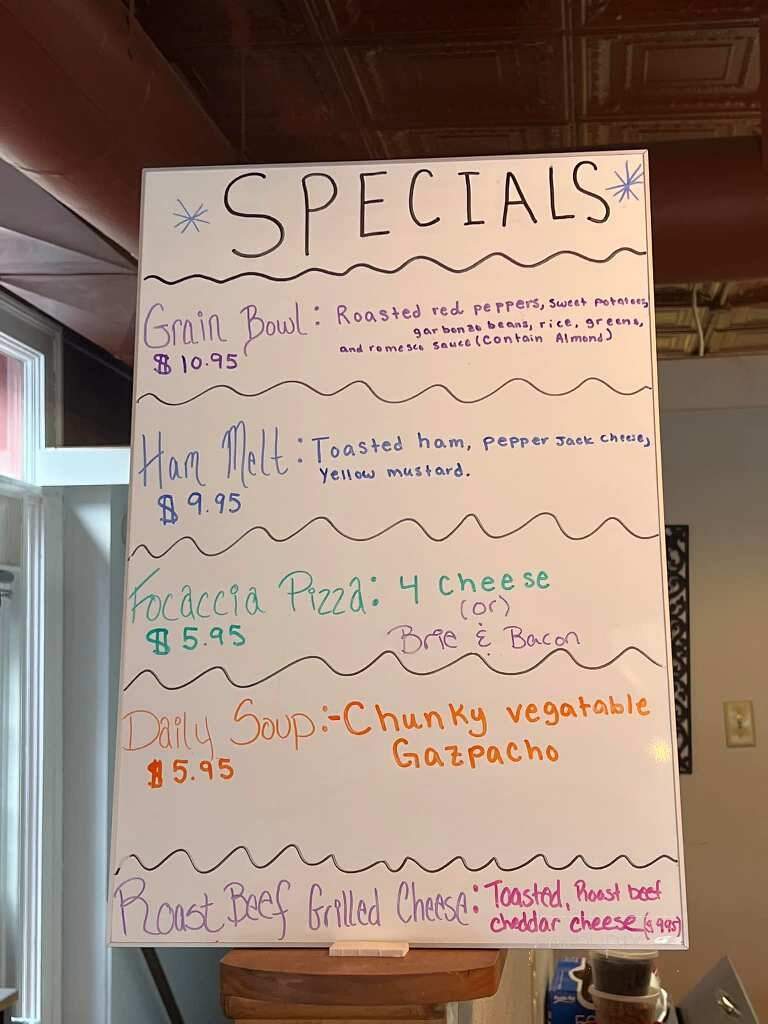 SPECIALS
Grain Bowl: Roasted red peppers, sweet potatoes,
garbonzo beans, rice, greens,
and romesco sauce (Contain Almond)
$ 10.95
Ham Melt: Toasted ham, pepper Jack cheese,
Yellow mustard.
$ 9.95
Focaccia Pizza: 4 cheese
(or)
$ 5.95
Brie & Bacon
Daily Soup:-Chunky vegatable
Gazpacho
$ 5.95
Roast Beef Grilled Cheese: Toasted, Roast beef
cheddar cheese ($ 9.95)